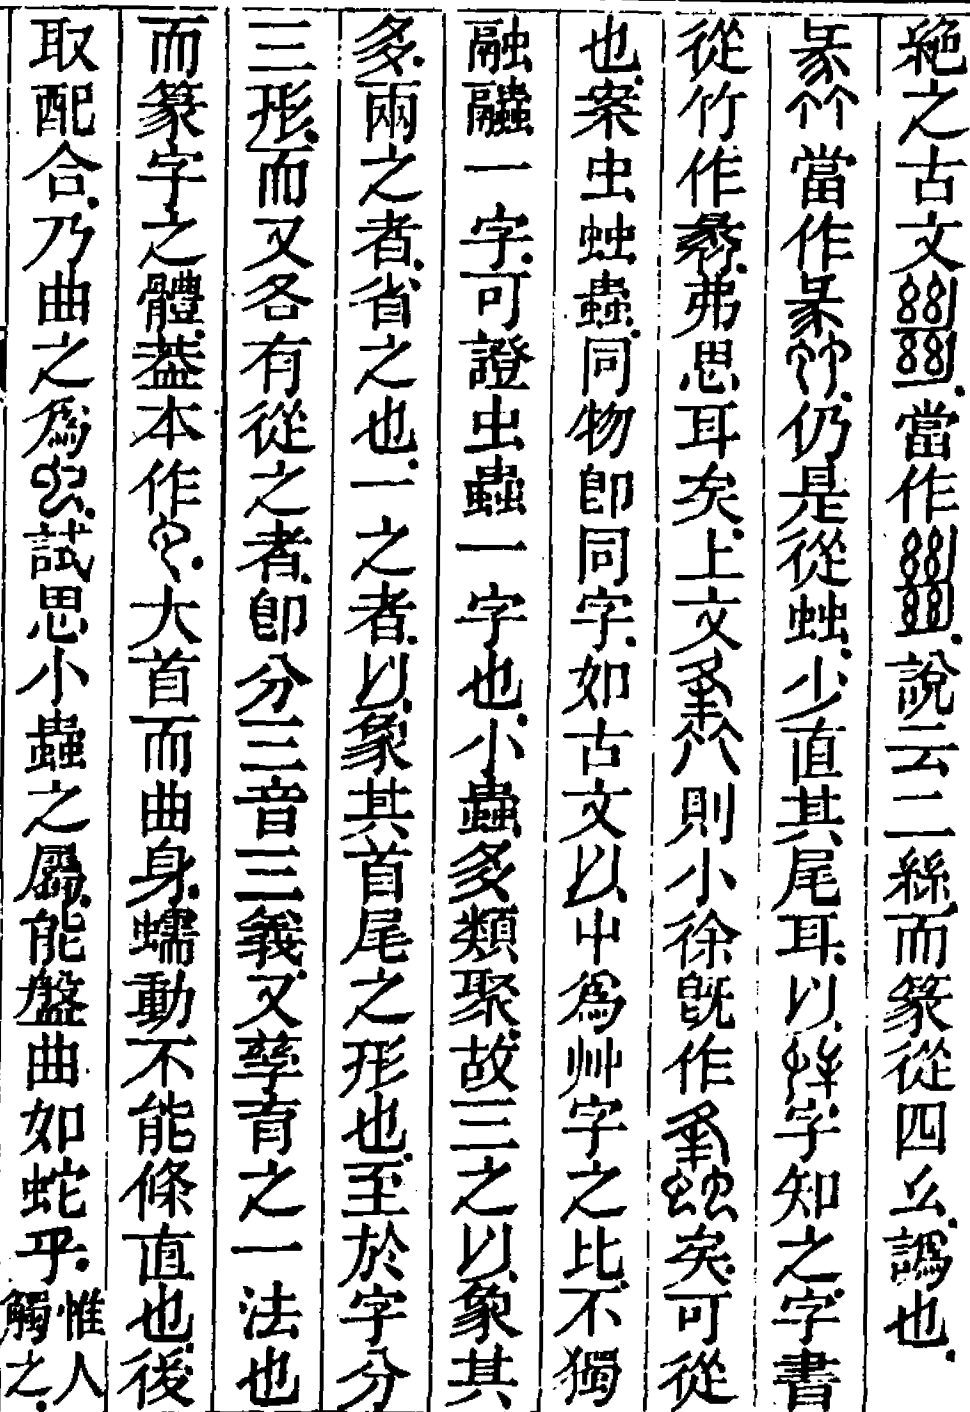 絕之古文𢇍當作𢇍說云二絲而篆從四幺譌也
當作仍是從䖵少直其尾耳以字知之字書
從竹作彝弗思耳矣上文則小徐旣作矣可從
也案虫䖵蟲同物卽同字如古文以屮爲艸字之比不獨
融䖝一字可證虫蟲一字也小蟲多類聚故三之以象其
多兩之者省之也一之者以象其首尾之形也至於字分
三形而又各有從之者卽分三音三義又孳育之一法也
而篆字之體葢本作大首而曲身蠕動不能條直也後
取配合乃曲之爲試思小蟲之屬能盤曲如蛇乎惟人觸之